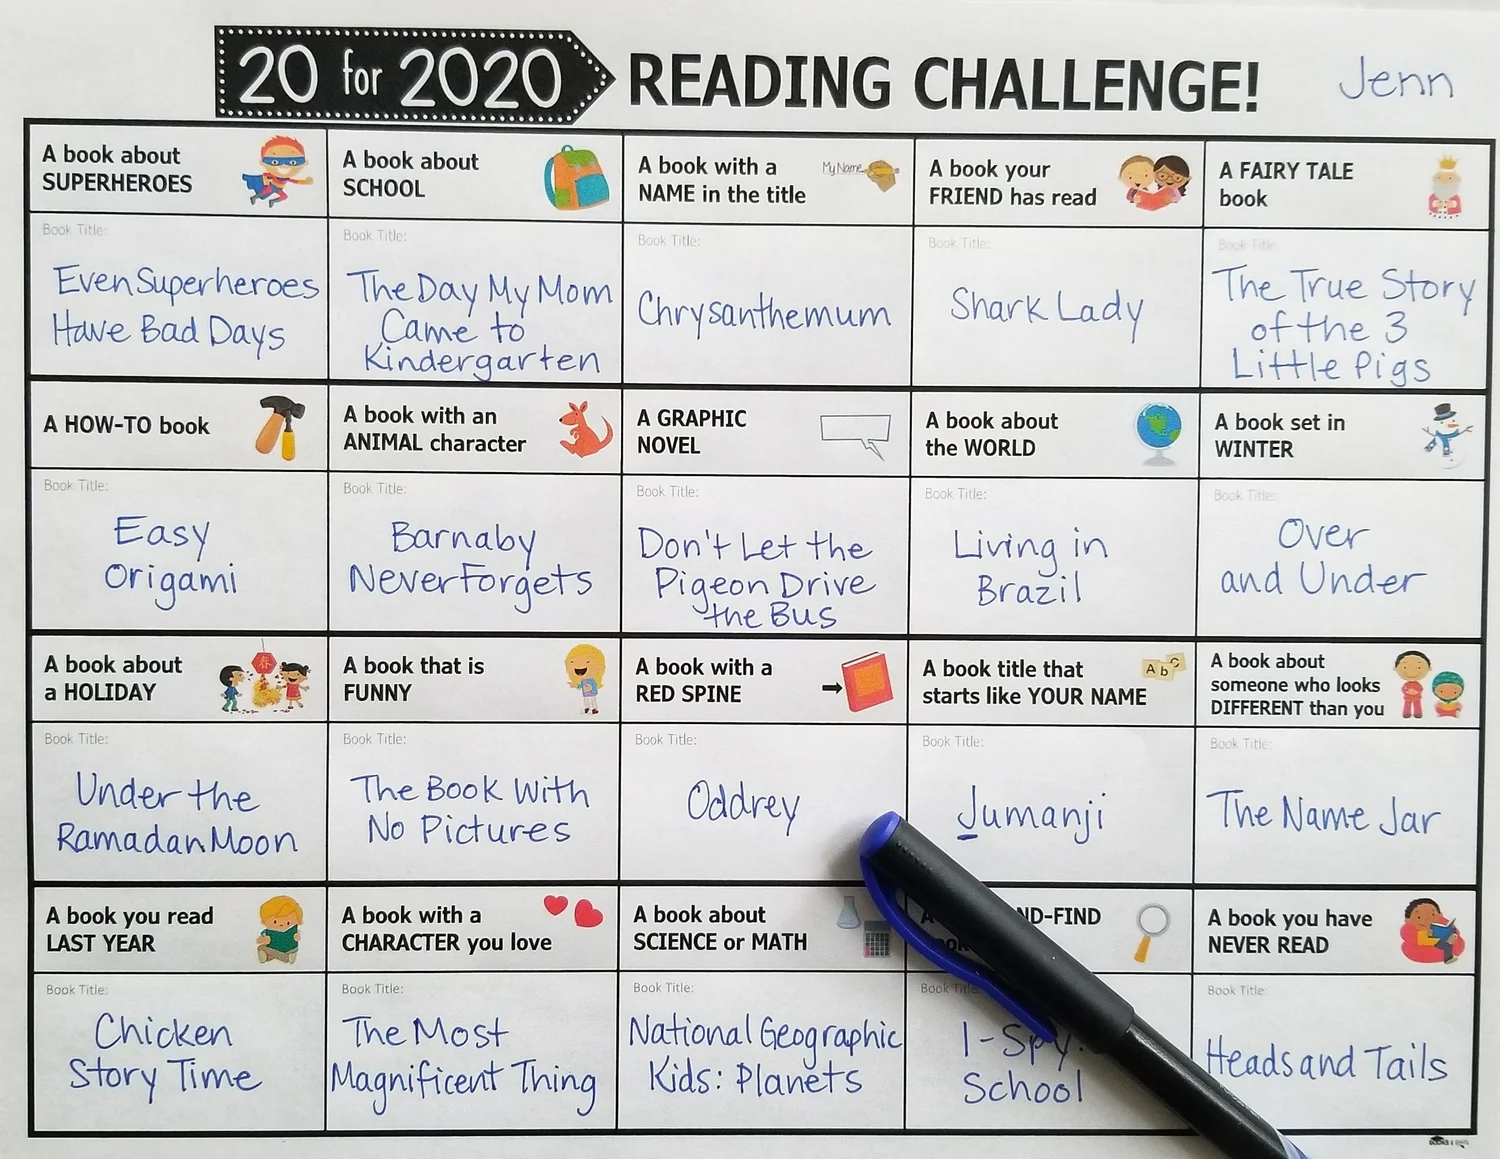 20 for 2020 READING CHALLENGE! Jenn
A book about
SUPERHEROES
A book about
SCHOOL
A book with a
NAME in the title
My Name
A book your
FRIEND has read
A FAIRY TALE
book
Book Title:
Even Superheroes
Have Bad Days
Book Title:
The Day My Mom
Came to
Kindergarten
Book Title:
Chrysanthemum
Book Title:
Shark Lady
Book Title:
The True Story
of the 3
Little Pigs
A HOW-TO book
A book with an
ANIMAL character
A GRAPHIC
NOVEL
A book about
the WORLD
A book set in
WINTER
Book Title:
Easy
Origami
Book Title:
Barnaby
Never Forgets
Book Title:
Don't Let the
Pigeon Drive
the Bus
Book Title:
Living in
Brazil
Book Title:
Over
and Under
A book about
a HOLIDAY
春
A book that is
FUNNY
A book with a
RED SPINE
A book title that
starts like YOUR NAME
A b C
A book about
someone who looks
DIFFERENT than you
Book Title:
Under the
Ramadan Moon
Book Title:
The Book With
No Pictures
Book Title:
Oddrey
Book Title:
Jumanji
Book Title:
The Name Jar
A book you read
LAST YEAR
A book with a
CHARACTER you love
A book about
SCIENCE or MATH
ND-FIND
A book you have
NEVER READ
Book Title:
Chicken
Story Time
Book Title:
The Most
Magnificent Thing
Book Title:
National Geographic
Kids: Planets
Book Title:
I-Spy:
School
Book Title:
Heads and Tails